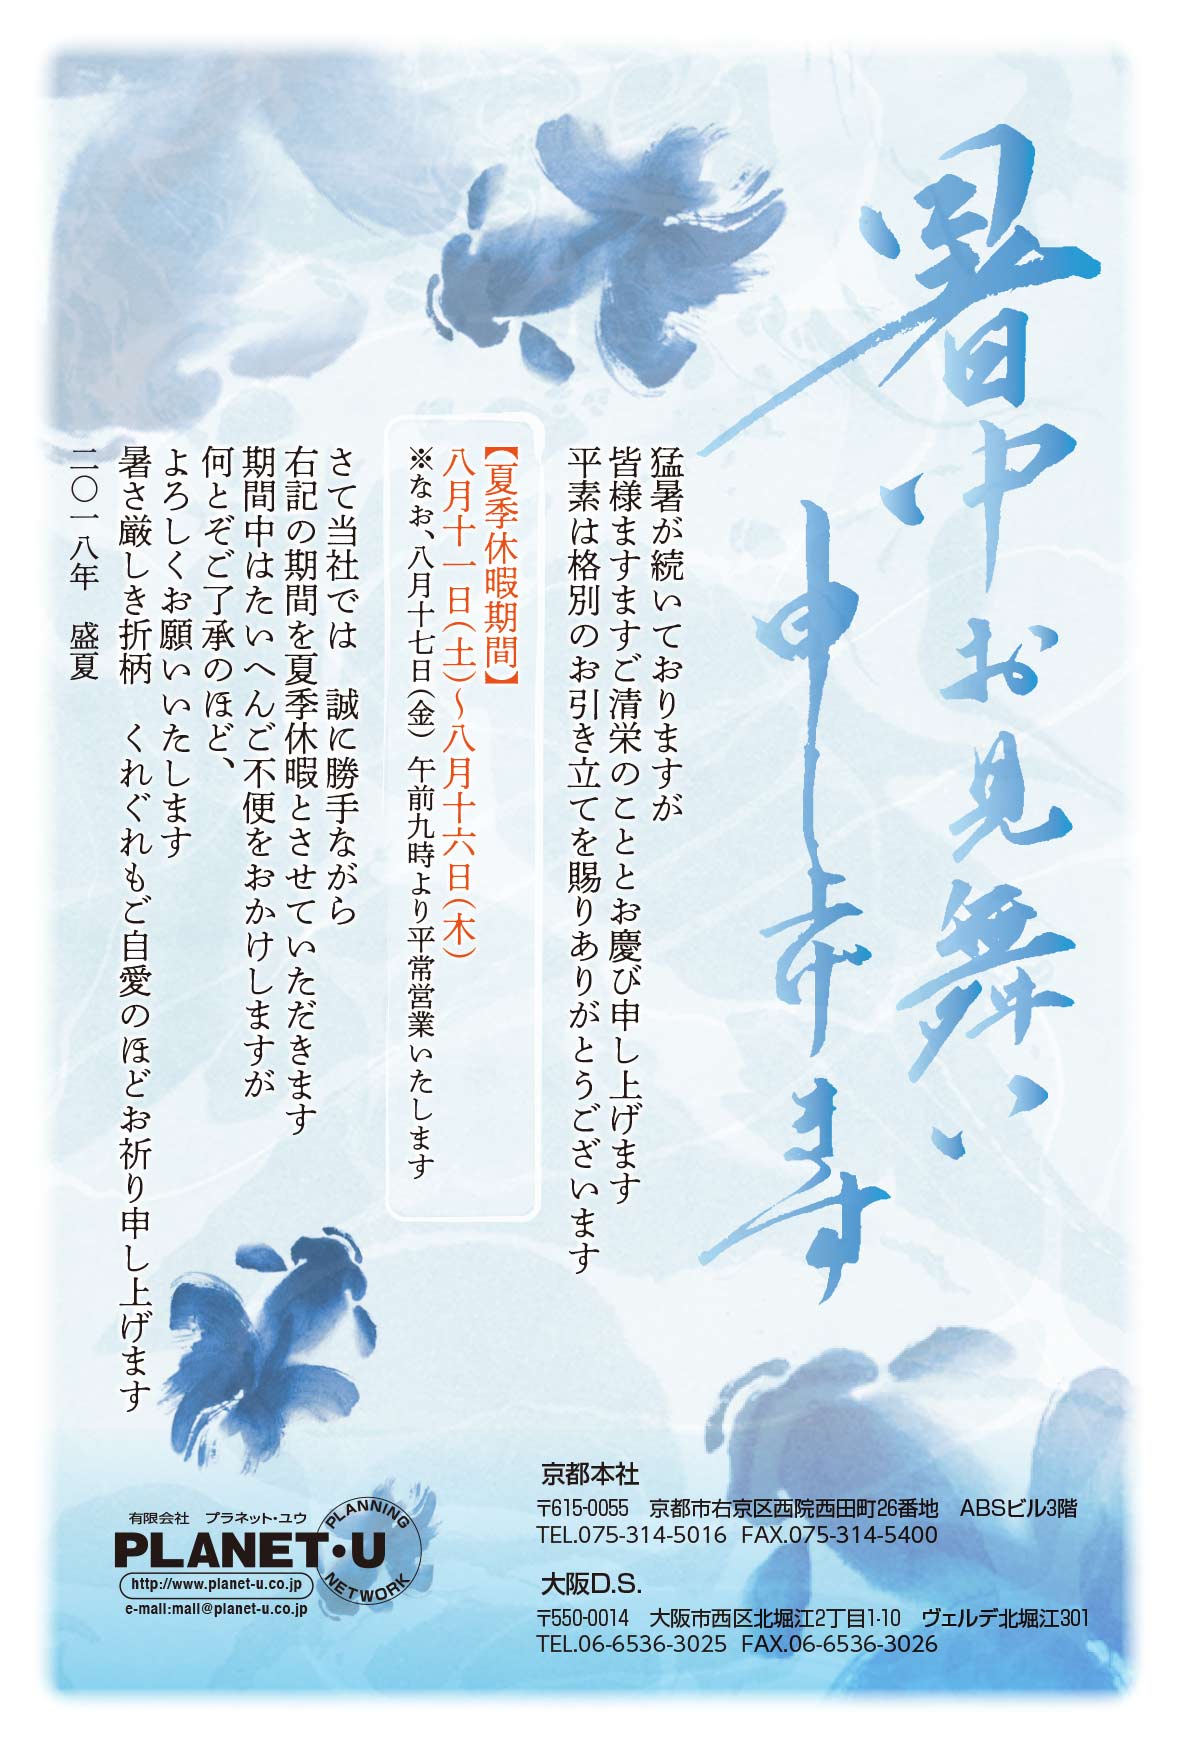 暑中お見舞い
申し上げます
猛暑が続いておりますが
皆様ますますご清栄のこととお慶び申し上げます
平素は格別のお引き立てを賜りありがとうございます
【夏季休暇期間】
八月十一日(土)～八月十六日(木)
※なお、八月十七日(金) 午前九時より平常営業いたします
さて当社では 誠に勝手ながら
右記の期間を夏季休暇とさせていただきます
期間中はたいへんご不便をおかけしますが
何とぞご了承のほど、
よろしくお願いいたします
暑さ厳しき折柄 くれぐれもご自愛のほどお祈り申し上げます
二〇一八年 盛夏
有限会社 プラネット・ユウ
PLANET・U
PLANNING
NETWORK
http://www.planet-u.co.jp
e-mail:mail@planet-u.co.jp
京都本社
〒615-0055 京都市右京区西院西田町26番地 ABSビル3階
TEL.075-314-5016 FAX.075-314-5400
大阪D.S.
〒550-0014 大阪市西区北堀江2丁目1-10 ヴェルデ北堀江301
TEL.06-6536-3025 FAX.06-6536-3026